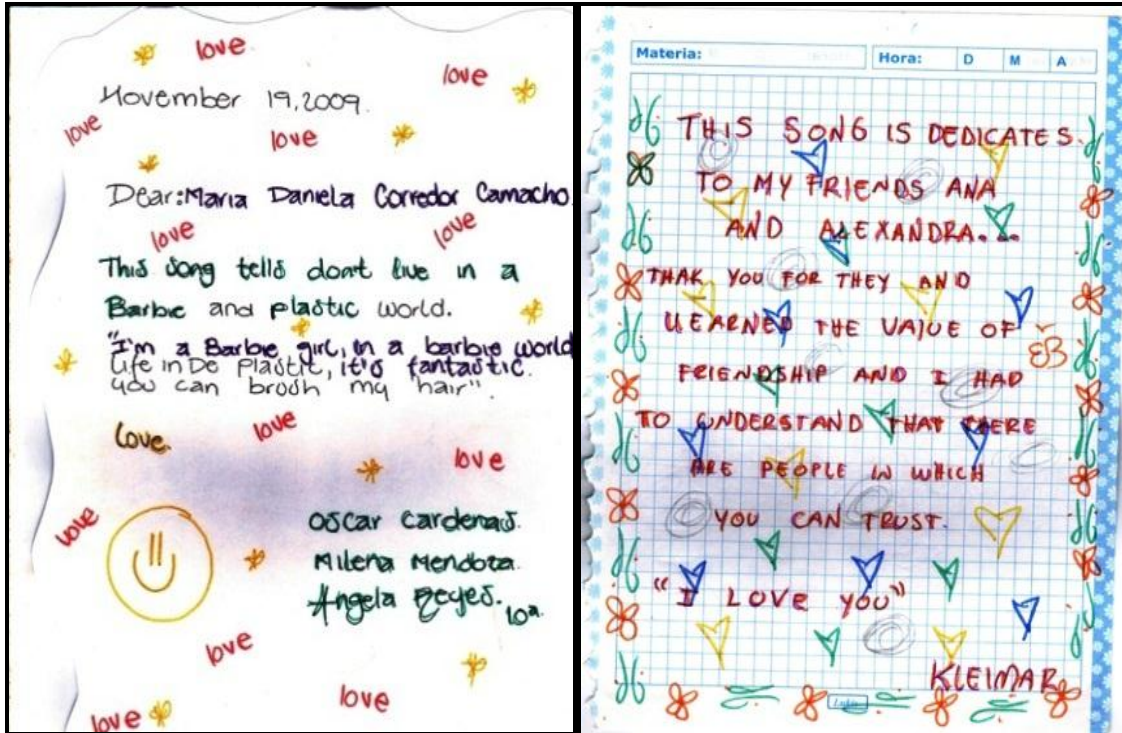 love
love
November 19,2009.
love
love
Dear:Maria Daniela Corredor Camacho.
love
love
This song tells dont live in a
Barbie and plastic world.
"I'm a Barbie girl, in a barbie world
Life in De plastic, it's fantastic.
you can brosh my hair".
Love.
love
love
love
Oscar Cardenas.
Milena Mendoza.
Angela Reyes. 10a.
love
love
love
Materia:
Hora: D M A
THIS SONG IS DEDICATES.
TO MY FRIENDS ANA
AND ALEXANDRA...
THAK YOU FOR THEY AND
LEARNED THE VALUE OF
FRIENDSHIP AND I HAD
TO UNDERSTAND THAT THERE
ARE PEOPLE IN WHICH
YOU CAN TRUST.
"I LOVE YOU"
KLEIMAR